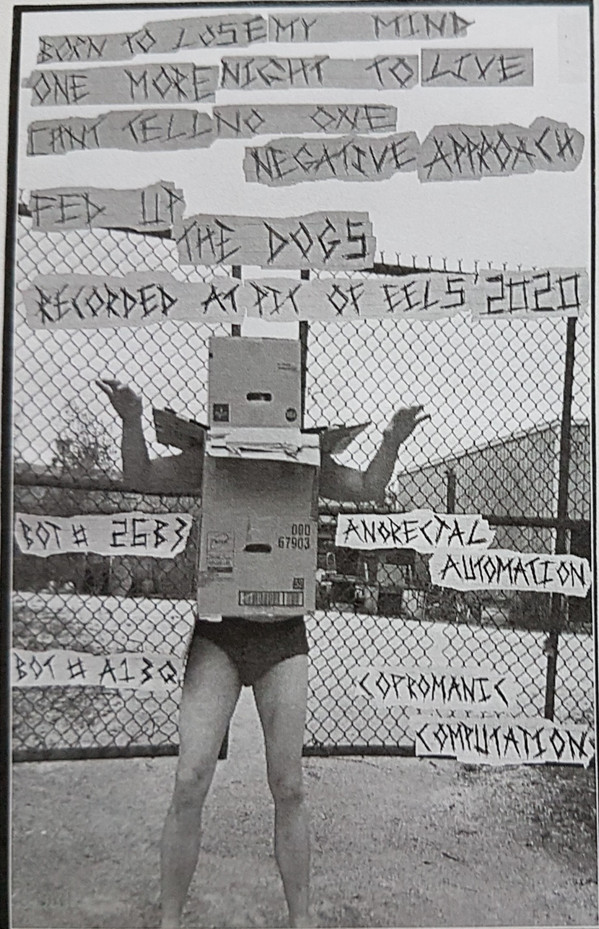 BORN TO LOSE MY MIND
ONE MORE NIGHT TO LIVE
CANT TELL NO ONE
NEGATIVE APPROACH
FED UP
THE DOGS
RECORDED AT PIT OF EELS 2020
000
67903
BOT # 2GB3
ANORECTAL
AUTOMATION
BOT # A13Q
COPROMANIC
COMPUTATION